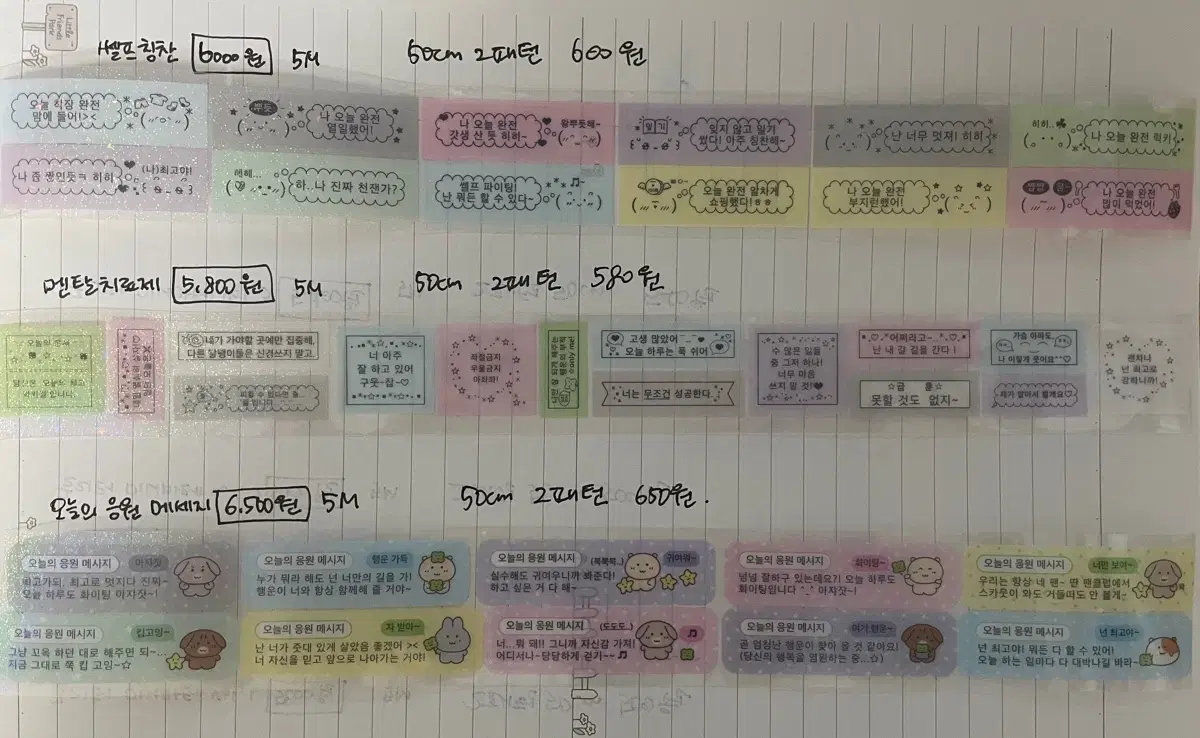 Little Friends Park
셀프칭찬 6000원 5M 50cm 2패턴 600원
오늘 직장 완전
맘에 들어!><
뿌듯
나 오늘 완전
열일했어!
나 오늘 완전
갓생 산 듯 히히~
왕뿌듯해~
일기
잊지 않고 일기
썼다! 아주 칭찬해~
난 너무 멋져! 히히
히히..
나 오늘 완전 럭키
나 좀 짱인듯ㅋ 히히
(나)최고야!
헤헤...
하..나 진짜 천잰가?
셀프 파이팅!
난 뭐든 할 수 있다~
오늘 완전 알차게
쇼핑했다!ㅎㅎ
나 오늘 완전
부지런했어!
나 오늘 완전
많이 먹었어!
멘탈치료제 5,800원 5M 50cm 2패턴 580원
네가 가야할 곳에만 집중해,
다른 달팽이들은 신경쓰지 말고.
너 아주
잘 하고 있어
구웃-잡-♡
좌절금지
우울금지
아좌좌!
only me!
고생 많았어
오늘 하루는 푹 쉬어
너는 무조건 성공한다.
수 많은 일들
중 그저 하나!
너무 마음
쓰지 말 것!♥
어쩌라고~
난 내 갈 길을 간다!
☆급훈☆
못할 것도 없지~
가슴 아파도
나 이렇게 웃어요
제가 알아서 할게요♡
괜차나
넌 최고로
강력니까!
오늘의 응원 메세지 6,500원 5M 50cm 2패턴 650원.
오늘의 응원 메시지 아자잣
최고가되, 최고로 멋지다 진짜~
오늘 하루도 화이팅 아자잣~!
오늘의 응원 메시지 행운 가득
누가 뭐라 해도 넌 너만의 길을 가!
행운이 너와 항상 함께해 줄 거야!
오늘의 응원 메시지 (뽁뽁뽁) 귀여워~
실수해도 귀여우니까 봐준다!
하고 싶은 거 다 해~
오늘의 응원 메시지 화이팅~
넘넘 잘하구 있는데요?! 오늘 하루도
화이팅입니다 ^_^ 아자잣~!
오늘의 응원 메시지 너만 보아~
우리는 항상 네 팬~ 딴 팬클럽에서
스카웃이 와도 거들떠도 안 볼게~
오늘의 응원 메시지 킵고잉~
그냥 꼬옥 하던 대로 해주면 되~...
지금 그대로 쭉 킵 고잉~☆
오늘의 응원 메시지 자 받아~
난 너가 줏대 있게 살았음 좋겠어 ><
너 자신을 믿고 앞으로 나아가는 거야!
오늘의 응원 메시지 (도도도..) ♫
너...뭐 돼!! 그니까 자신감 가져!
어디서나~당당하게 걷기~~♫
오늘의 응원 메시지 여기 행운~
곧 엄청난 행운이 찾아 올 것 같아요!
(당신의 행복을 염원하는 중...☆)
오늘의 응원 메시지 넌 최고야~
넌 최고야! 뭐든 다 할 수 있어!
오늘 하는 일마다 다 대박나길 바라~